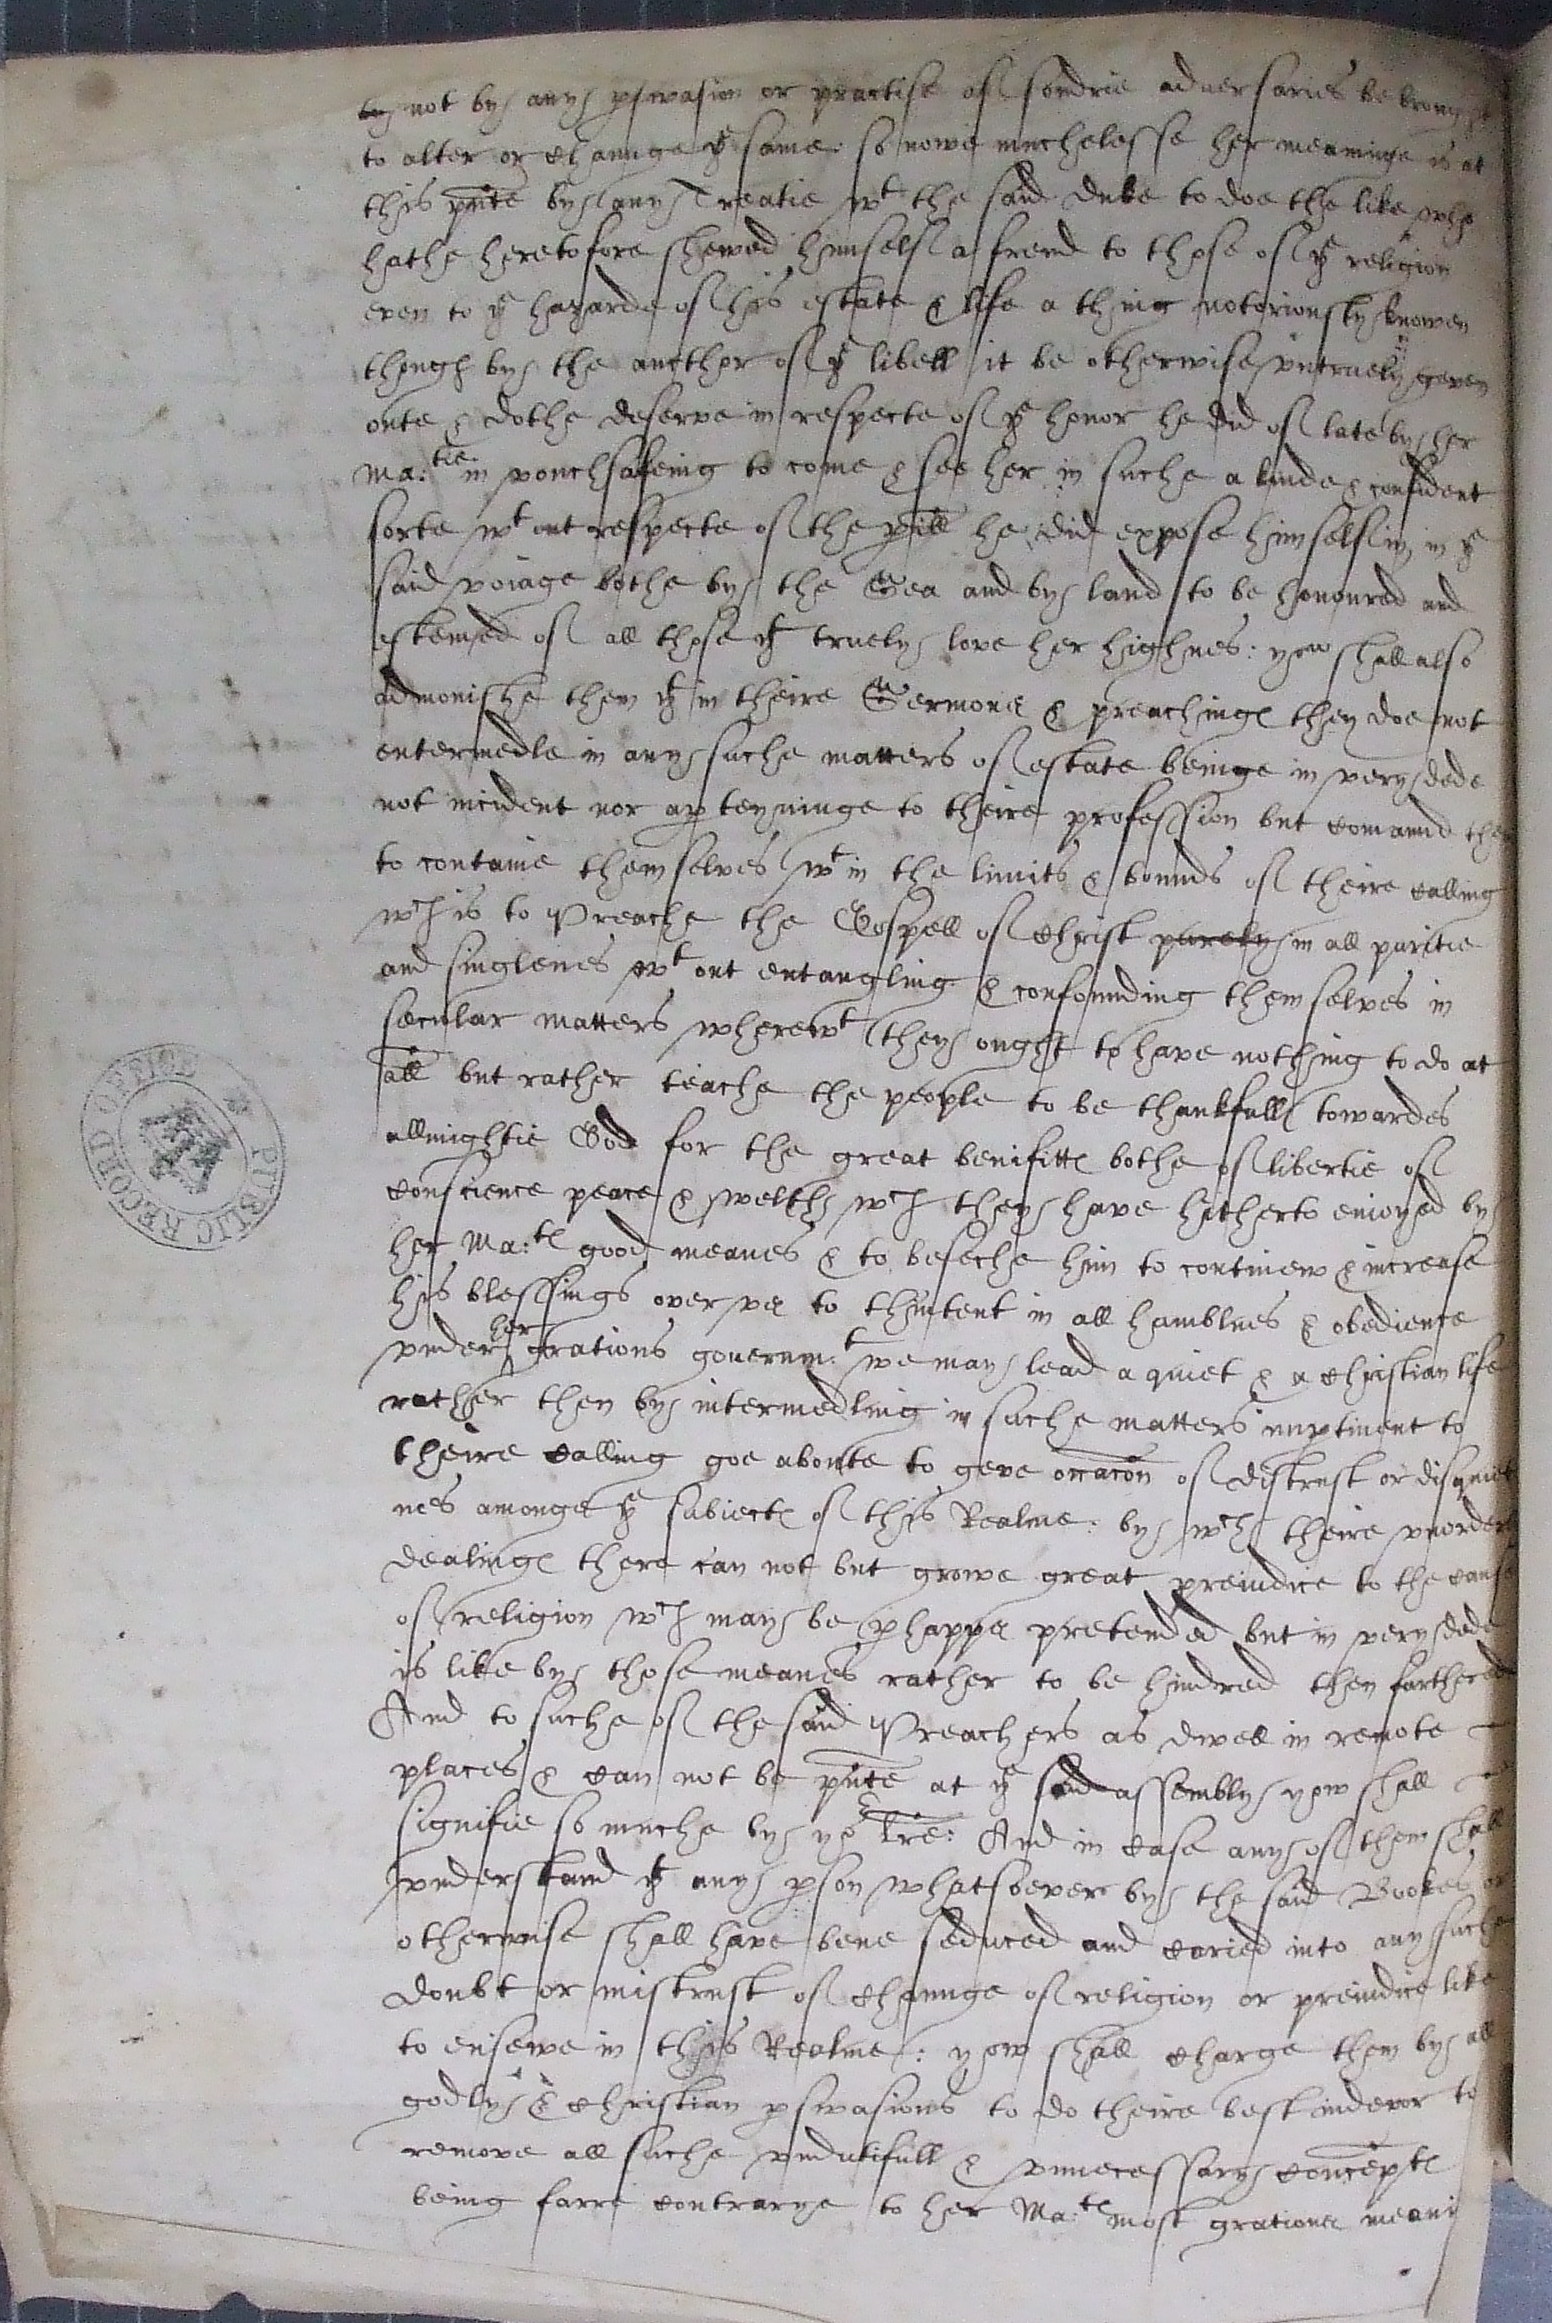 by not by any pswasion or practise of sondrie aduersaries be brought
to alter or chaunge yͤ same. so nowe mucheless​e her meaninge is at
this pn̄te by any Treatie wᵗ the said Duke to doe the like who
hathe heretofore shewed himself a frend to those of yͤ religion
even to yͤ hazarde of his estate & life a thing notoriously knowen
though by the aucthor of yͤ libell it be otherwise vntruely geven
oute & dothe deserve in respecte of yͤ honor he did of late by her
Ma:ᵗⁱᵉ in vouchsafeing to come & see her in suche a kinde & confident
sorte wᵗ out respecte of the pill he did expose himself in in yͤ
said voiage bothe by the Sea and by land to be honoured and
estemed of all those yᵗ truely love her highnes: yow shall also
admonishe them yᵗ in theire Sermons & preachings they doe not
entermedle in any suche matters of estate beinge in very dede
not incident nor apteyninge to theire profession but comaund them
to containe themselves wᵗ in the limits & bounds of theire calling
wᶜʰ is to Preache the Gospell of Christ purely in all puritie
and singlenes wᵗ out entangling & confounding themselves in
secular matters wherewᵗ they ought to have nothing to do at
all but rather teache the people to be thankfull towardes
allmightie God for the great benifitts bothe of libertie of
conscience peace & welth wᶜʰ they have hitherto enioyed by
her Ma:ᵗˢ good meanes & to beseche him to continew & increase
his blessings over vs to thintent in all humblnes & obedience
vnder her gratious governm:ᵗ we may lead a quiet & a Christian life
rather then by intermedling in suche matters imptinent to
theire calling goe aboute to geve occac̄on of distrust or disquiet
nes amonge yͤ subiects of this Realme: by wᶜʰ theire vnorderly
dealings there can not but growe great preiudice to the cause
of religion wᶜʰ may be phapps pretended but in very dede
is like by those meanes rather to be hindred then furthered
And to suche of the said Preachers as dwell in remote
places & can not be pn̄te at yͤ said assembly yow shall
signifie so muche by yoʳ lr̄e: And in case any of them shall
vnderstand yᵗ any pson whatsoever by the said Bookes or
otherwise shall have bene seduced and caried into any suche
doubt or mistrust of chaunge of religion or preiudice like
to ensewe in this Realme: yow shall charge them by all
godly & Christian pswasions to do theire best indevor to
remove all suche vndutifull & vnnecessary concepts
being farre contrarye to her Ma:ᵗˢ most gratious meani
PUBLIC RECORD OFFICE